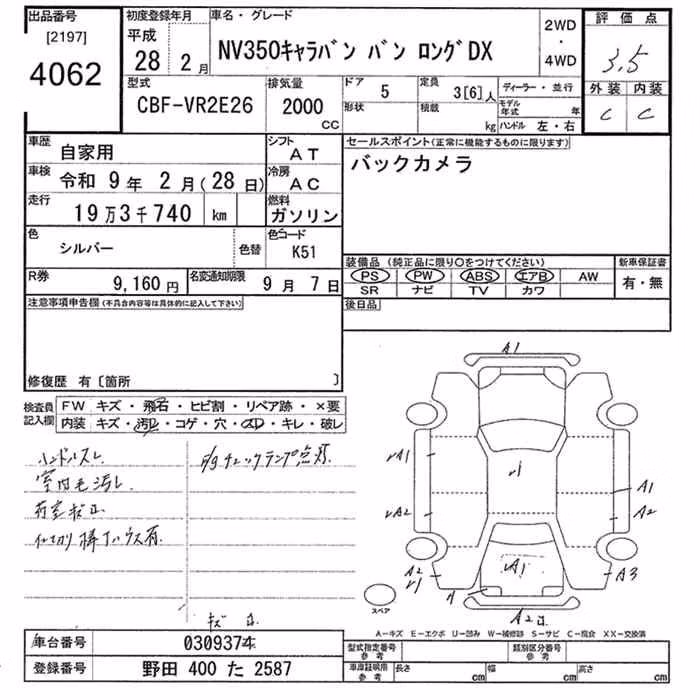 出品番号
[2197]
4062
初度登録年月
平成
28 2月
車名・グレード
NV350キャラバン バン ロングDX
2WD
・
4WD
評価点
3.5
外装 内装
C C
型式
CBF-VR2E26
排気量
2000
CC
ドア
5
形状
定員
3[6]人
積載
kg
ディーラー・並行
モデル年式
年
ハンドル 左・右
車歴
自家用
シフト
AT
車検
令和 9年 2月(28日)
冷房
AC
走行
19万3千740 km
燃料
ガソリン
色
シルバー
色替
色コード
K51
R券
9,160円
名変通知期限
9月 7日
セールスポイント(正常に機能するものに限ります)
バックカメラ
装備品 (純正品に限り○をつけてください)
新車保証書
PS PW ABS エアB AW
SR ナビ TV カワ
有・無
後日品
注意事項申告欄(不具合内容等は具体的に記入して下さい)
修復歴 有〔箇所 〕
検査員
記入欄
FW キズ・飛石・ヒビ割・リペア跡・×要
内装 キズ・汚レ・コゲ・穴・スレ・キレ・破レ
ハンドルスレ
室内毛汚レ
仕切り棒
チェックランプ点灯
A1
A1
A2
A1
A2
A2
A3
A2
スペア
A-キズ E-エクボ U-凹み W-補修跡 S-サビ C-腐食 XX-交換済
車台番号
030937
登録番号
野田 400 た 2587
型式指定番号
参考
類別区分番号
参考
車庫証明用
参考
長さ cm 幅 cm 高さ cm